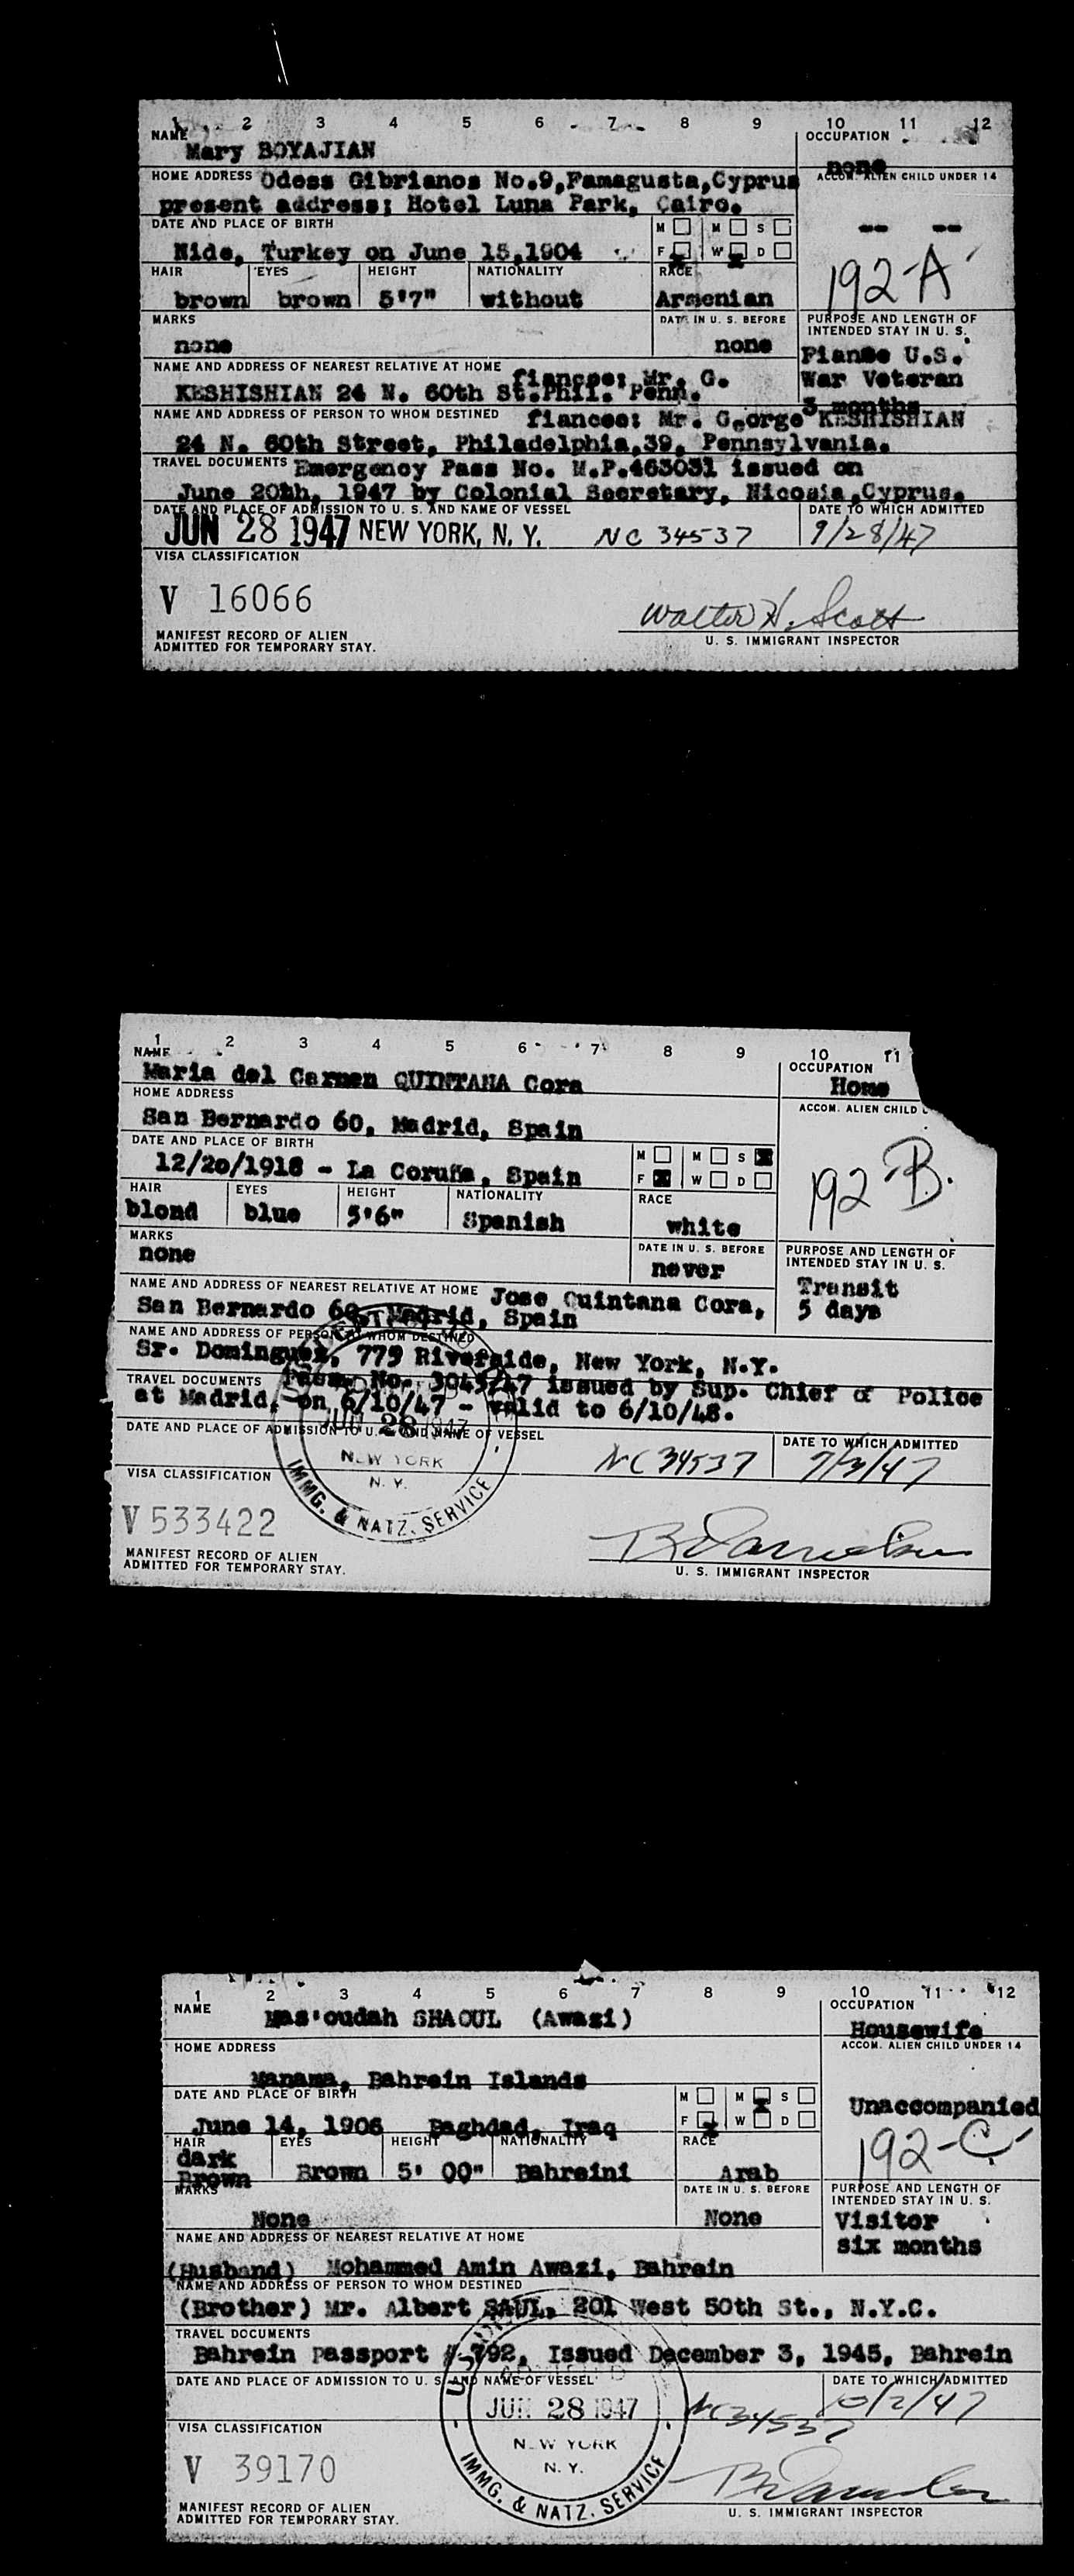 1 2 3 4 5 6 7 8 9 10 11 12
NAME OCCUPATION
Mary BOYAJIAN none
HOME ADDRESS Odess Gibrianos No.9,Famagusta,Cyprus ACCOM. ALIEN CHILD UNDER 14
present address; Hotel Luna Park, Cairo. -- --
DATE AND PLACE OF BIRTH M M S
Nide, Turkey on June 15,1904 F W D
192-A
HAIR EYES HEIGHT NATIONALITY RACE
brown brown 5'7" without Armenian
MARKS DATE IN U. S. BEFORE PURPOSE AND LENGTH OF INTENDED STAY IN U. S.
none none Fiancee U.S.
War Veteran
3 months
NAME AND ADDRESS OF NEAREST RELATIVE AT HOME fiancee: Mr. G.
KESHISHIAN 24 N. 60th St.Phil. Penn.
NAME AND ADDRESS OF PERSON TO WHOM DESTINED fiancee: Mr. George KESHISHIAN
24 N. 60th Street, Philadelphia,39, Pennsylvania.
TRAVEL DOCUMENTS Emergency Pass No. M.P.463031 issued on
June 20th, 1947 by Colonial Secretary, Nicosia,Cyprus.
DATE AND PLACE OF ADMISSION TO U. S. AND NAME OF VESSEL DATE TO WHICH ADMITTED
JUN 28 1947 NEW YORK, N. Y. NC 34537 9/28/47
VISA CLASSIFICATION
V 16066
Walter H. Scott
MANIFEST RECORD OF ALIEN U. S. IMMIGRANT INSPECTOR
ADMITTED FOR TEMPORARY STAY.
1 2 3 4 5 6 7 8 9 10 11
NAME OCCUPATION
Maria del Carmen QUINTANA Cora Home
HOME ADDRESS ACCOM. ALIEN CHILD
San Bernardo 60, Madrid, Spain
DATE AND PLACE OF BIRTH M M S
12/20/1918 - La Coruña, Spain F W D
192 B.
HAIR EYES HEIGHT NATIONALITY RACE
blond blue 5'6" Spanish white
MARKS DATE IN U. S. BEFORE PURPOSE AND LENGTH OF INTENDED STAY IN U. S.
none never Transit
5 days
NAME AND ADDRESS OF NEAREST RELATIVE AT HOME Jose Quintana Cora,
San Bernardo 60, Madrid, Spain
NAME AND ADDRESS OF PERSON TO WHOM DESTINED
Sr. Dominguez, 779 Riverside, New York, N.Y.
TRAVEL DOCUMENTS Passp. No. 3045/47 issued by Sup. Chief of Police
at Madrid, on 6/10/47 - valid to 6/10/48.
DATE AND PLACE OF ADMISSION TO U. S. AND NAME OF VESSEL DATE TO WHICH ADMITTED
JUN 28 1947
NEW YORK
N. Y.
IMMG. & NATZ. SERVICE
NC 34537 7/3/47
VISA CLASSIFICATION
V 533422
MANIFEST RECORD OF ALIEN U. S. IMMIGRANT INSPECTOR
ADMITTED FOR TEMPORARY STAY.
1 2 3 4 5 6 7 8 9 10 11 12
NAME OCCUPATION
Mas'oudah SHAOUL (Awazi) Housewife
HOME ADDRESS ACCOM. ALIEN CHILD UNDER 14
Manama, Bahrein Islands
DATE AND PLACE OF BIRTH M M S Unaccompanied
June 14, 1906 Baghdad, Iraq F W D
192-C
HAIR EYES HEIGHT NATIONALITY RACE
dark
Brown Brown 5' 00" Bahreini Arab
MARKS DATE IN U. S. BEFORE PURPOSE AND LENGTH OF INTENDED STAY IN U. S.
None None Visitor
six months
NAME AND ADDRESS OF NEAREST RELATIVE AT HOME
(Husband) Mohammed Amin Awazi, Bahrein
NAME AND ADDRESS OF PERSON TO WHOM DESTINED
(Brother) Mr. Albert SAUL, 201 West 50th St., N.Y.C.
TRAVEL DOCUMENTS
Bahrein Passport #792, Issued December 3, 1945, Bahrein
DATE AND PLACE OF ADMISSION TO U. S. AND NAME OF VESSEL DATE TO WHICH ADMITTED
ADMITTED
JUN 28 1947
NEW YORK
N. Y.
IMMG. & NATZ. SERVICE
NC34537 10/2/47
VISA CLASSIFICATION
V 39170
MANIFEST RECORD OF ALIEN U. S. IMMIGRANT INSPECTOR
ADMITTED FOR TEMPORARY STAY.